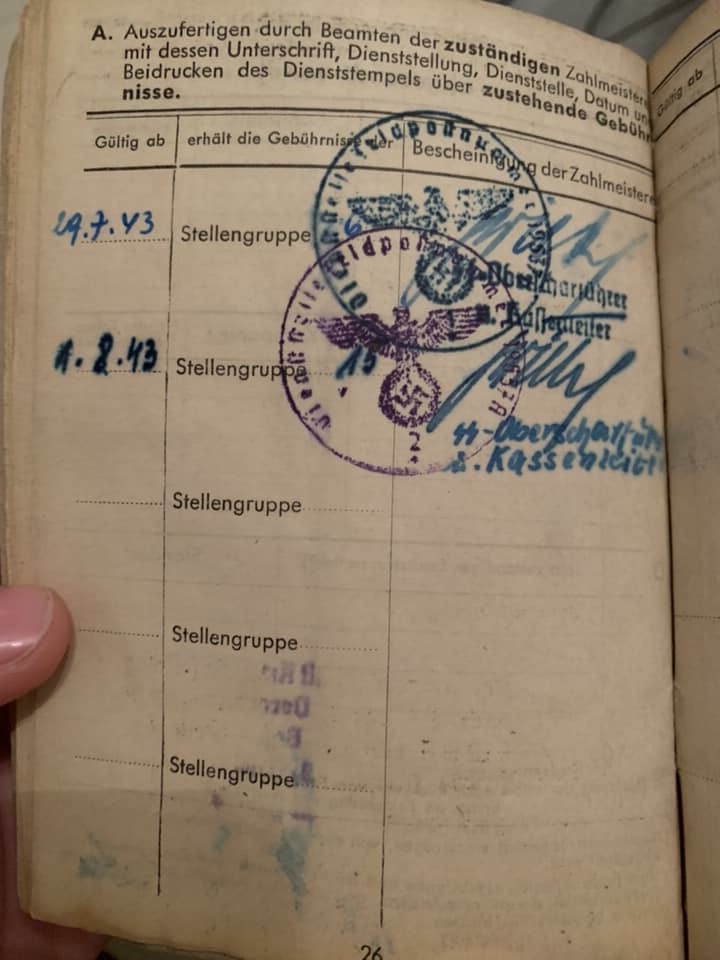 A. Auszufertigen durch Beamten der zuständigen Zahlmeistere
mit dessen Unterschrift, Dienststellung, Dienststelle, Datum un
Beidrucken des Dienststempels über zustehende Gebühr
nisse.
Gültig ab erhält die Gebührnisse der Bescheinigung der Zahlmeistere
Gültig ab
29.7.43 Stellengruppe 6
SS-Oberscharführer
u. Kassenleiter
1.8.43 Stellengruppe 15
Dienststelle Feldpostnummer
2
SS-Oberscharfüh
u. Kassenleit
Stellengruppe
Stellengruppe
Stellengruppe
26